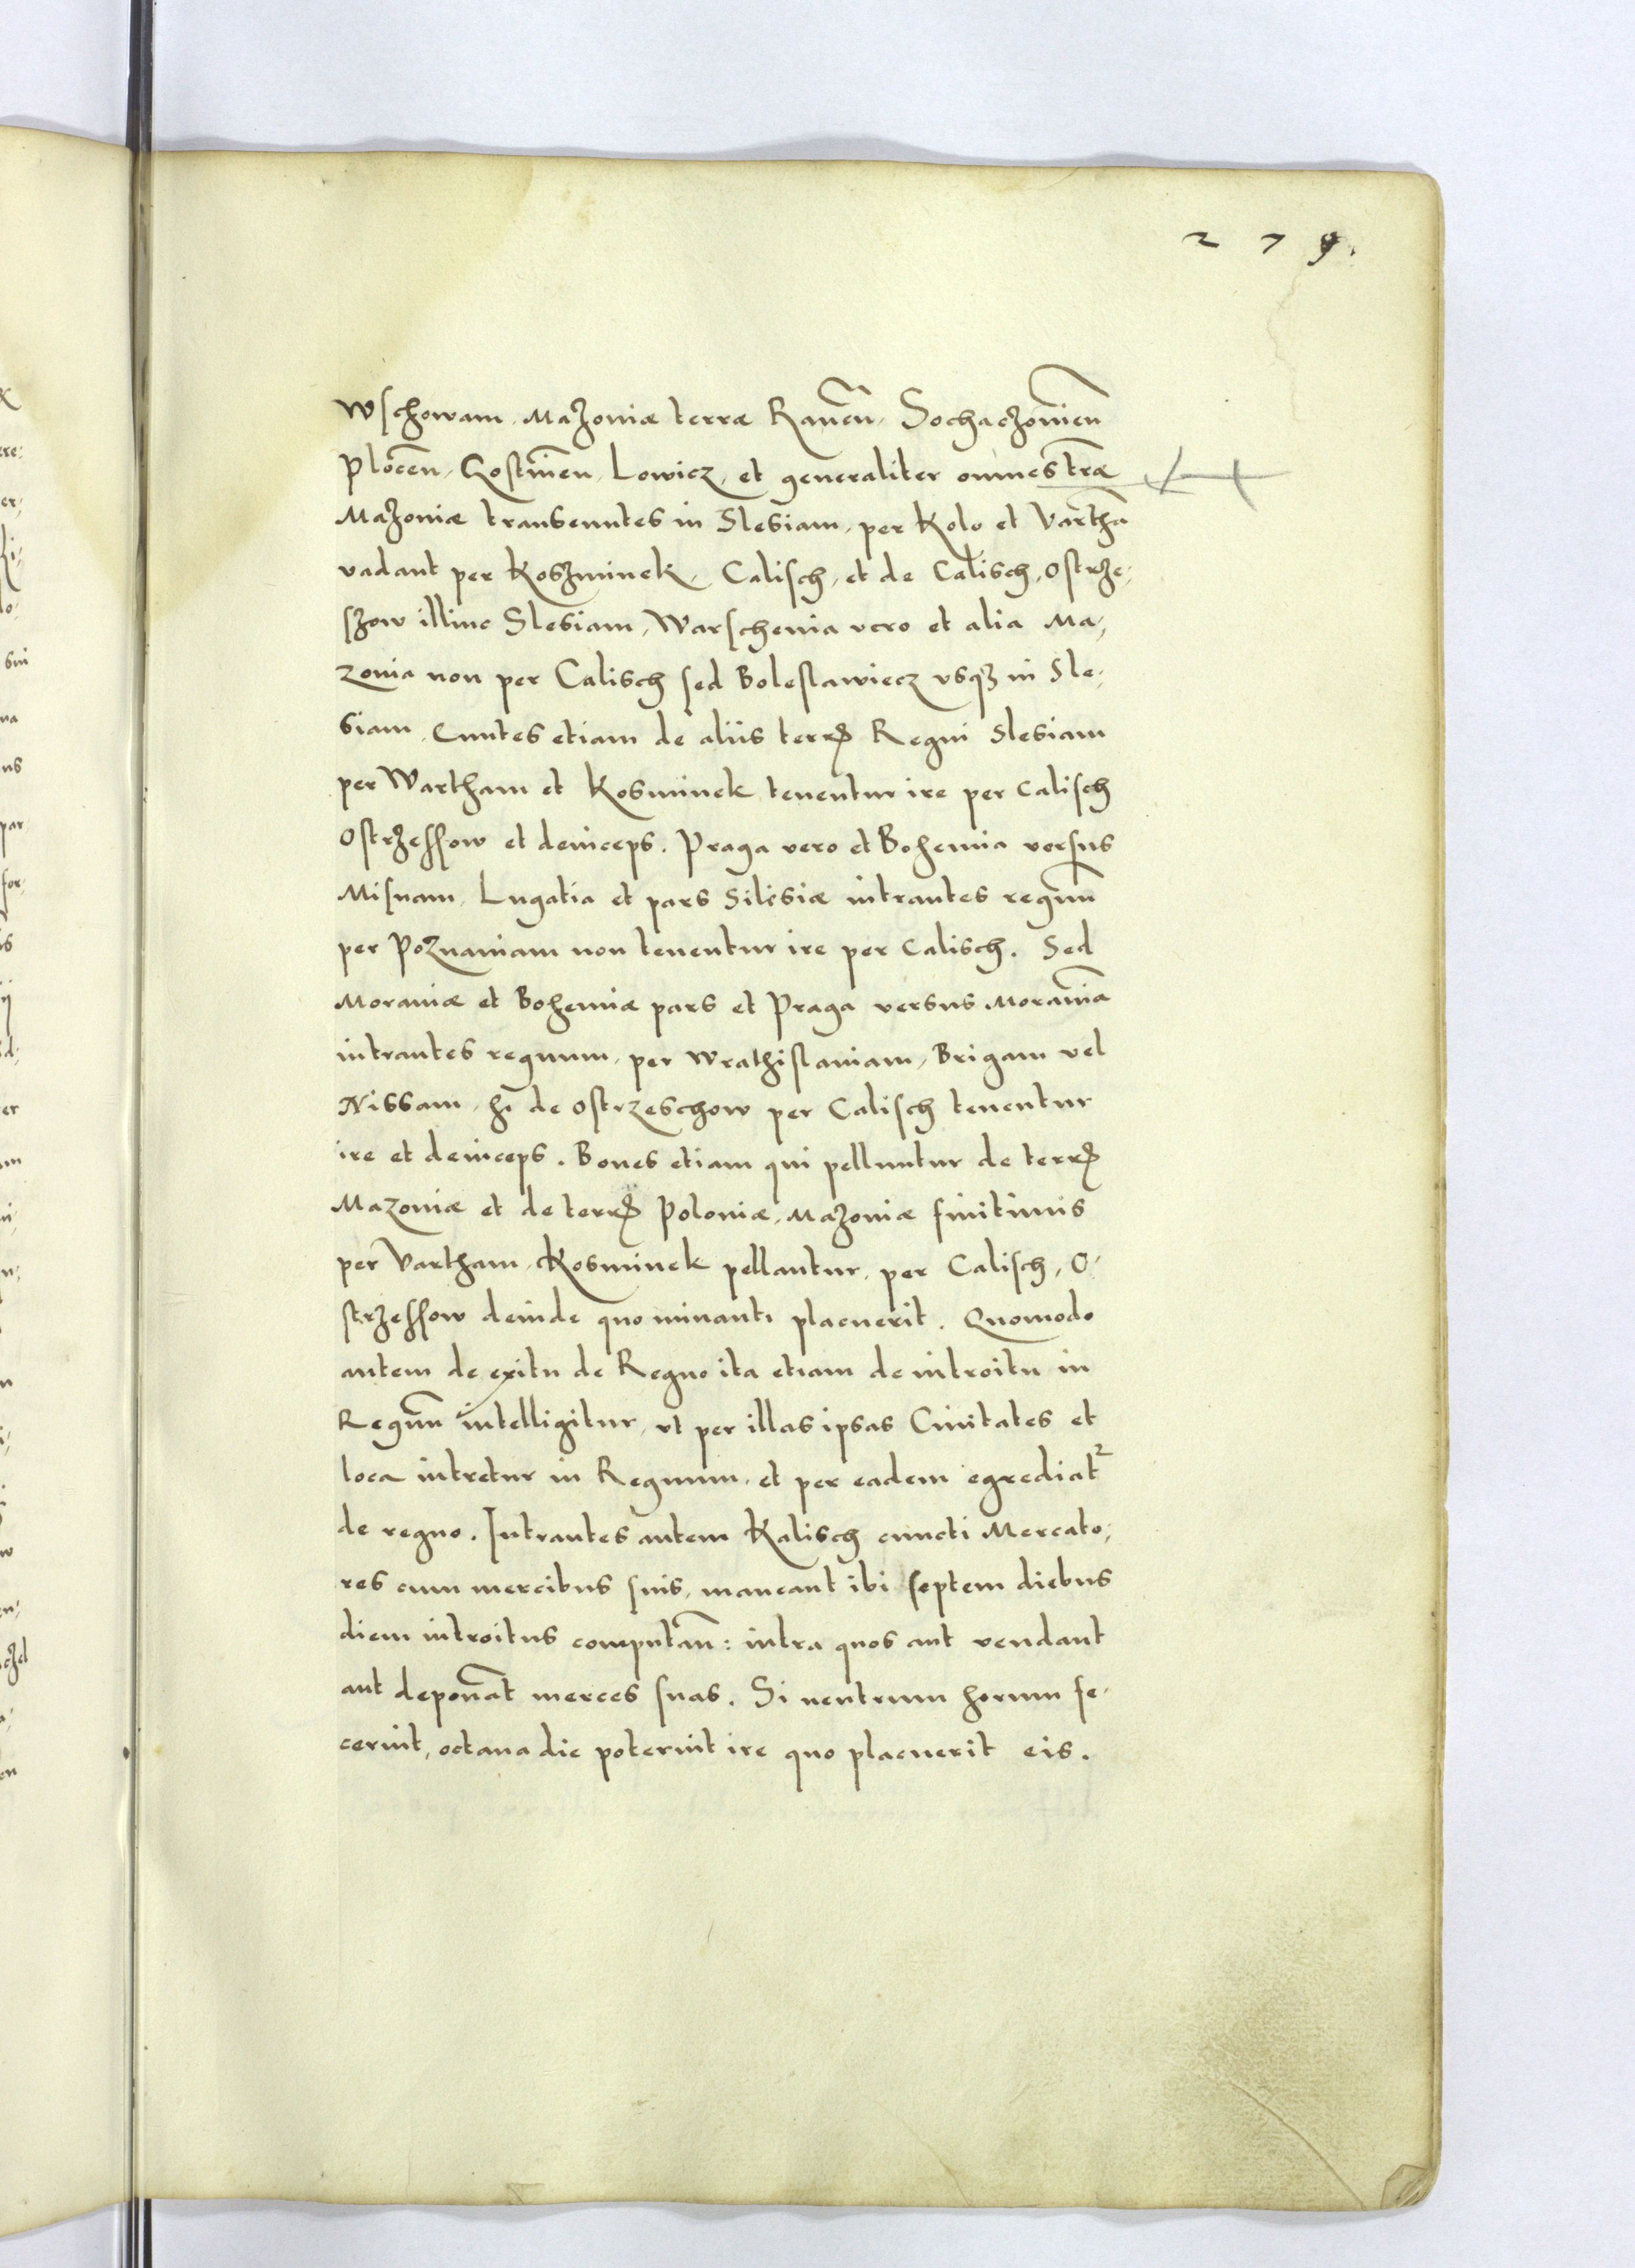 279.
Wschowam, Mazoviæ terræ Raveñ, Sochaczovieñ
Ploceñ, Gostinieñ, Lowicz, et generaliter omnes tr̃æ
Mazoviæ transeuntes in Slesiam, per Kolo et Varthã
vadant per Koszminek, Calisch, et de Calisch, Ostrze,
szow illinc Slesiam, Warschevia vero et alia Ma,
zovia non per Calisch sed Boleslawiecz usqꝫ in Sle,
siam. Euntes etiam de aliis terrꝭ Regni Slesiam
per Wartham et Kosminek tenentur ire per Calisch
Ostrzessow et deinceps. Praga vero et Bohemia versus
Misnam, Lugatia et pars Silesiæ intrantes regnũ
per Poznaniam non tenentur ire per Calisch. Sed
Moraviæ et Bohemiæ pars et Praga versus Moraviã
intrantes regnum, per Wrathislaviam, Brigam vel
Nissam, hi de Ostrzeschow per Calisch tenentur
ire et deinceps. Boves etiam qui pelluntur de terrꝭ
Mazoviæ et de terrꝭ Poloniæ, Mazoviæ finitimis
per Vartham, Kosminek pellantur, per Calisch, O,
strzessow deinde quo minanti placuerit. Quomodo
autem de exitu de Regno ita etiam de introitu in
Regnũ intelligitur, ut per illas ipsas Civitates et
loca intretur in Regnum, et per eadem egrediat᷑
de regno. Intrantes autem Kalisch cuncti Mercato,
res cum mercibus suis, maneant ibi septem diebus
diem introitus computañ: intra quos aut vendant
aut deponãt merces suas. Si neutrum horum fe,
cerint, octava die poterint ire quo placuerit eis.